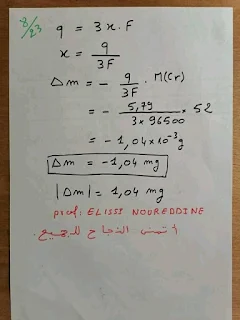 8/23
q = 3x.F
x = q/3F
Δm = - q/3F . M(Cr)
= - 5,79/3×96500 × 52
= - 1,04×10⁻³g
Δm = -1,04 mg
|Δm| = 1,04 mg
prof: ELISSI NOUREDDINE
أتمنى النجاح للجميع.